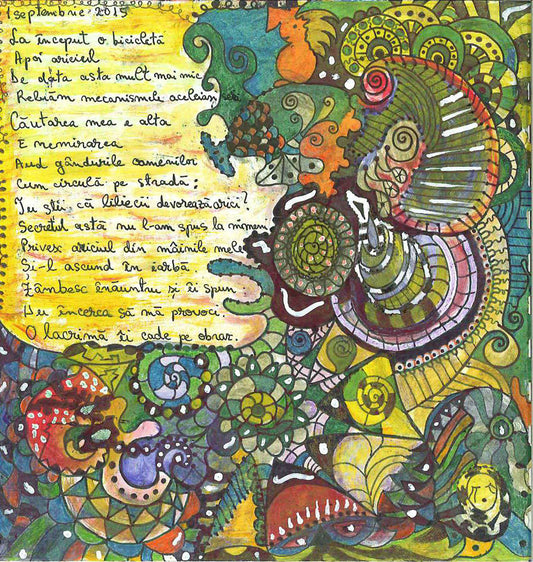 1 septembrie 2015
La început o bicicletă
Apoi ariciul
De data asta mult mai mic
Rebiăm mecanismele aceleiași
Căutarea mea e alta
E nemurirea
Aud gândurile oamenilor
Cum circulă pe stradă:
Tu știi, că liliecii devorează arici?
Secretul ăsta nu l-am spus la nimeni
Privesc ariciul din mâinile mele
Și-l ascund în iarbă
Zâmbesc înăuntru și îi spun
Nu încerca să mă provoci.
O lacrimă îi cade pe obraz.